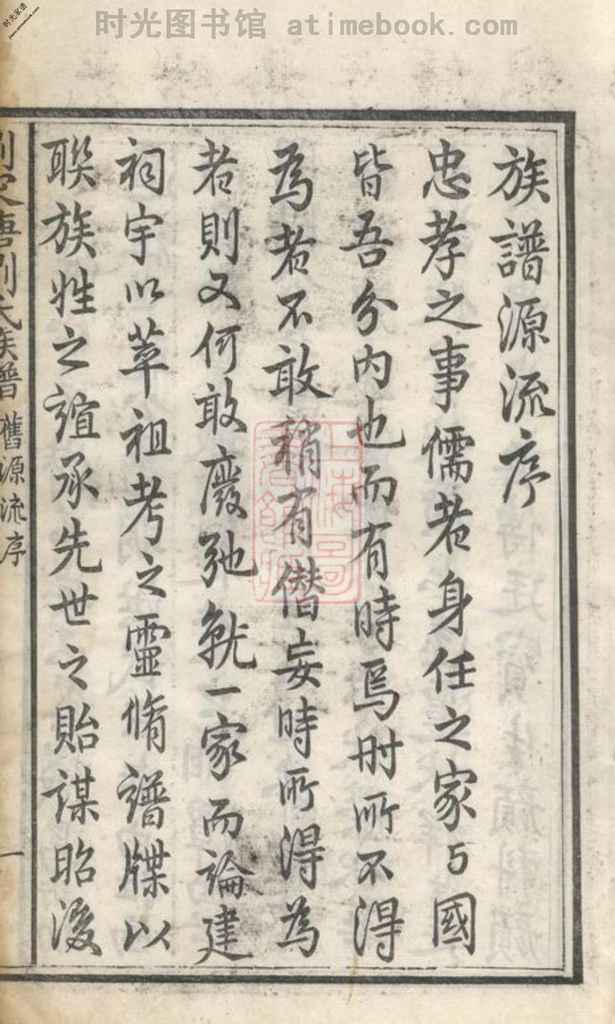 时光图书馆 atimebook.com
族譜源流序
忠孝之事儒者身任之家与國
皆吾分內也而有時焉时所不得
為者不敢稍有僭妄時所得為
者則又何敢廢弛就一家而論建
祠宇以萃祖考之靈脩譜牒以
聯族姓之誼承先世之貽謀昭後
劉氏族譜 舊源流序
一